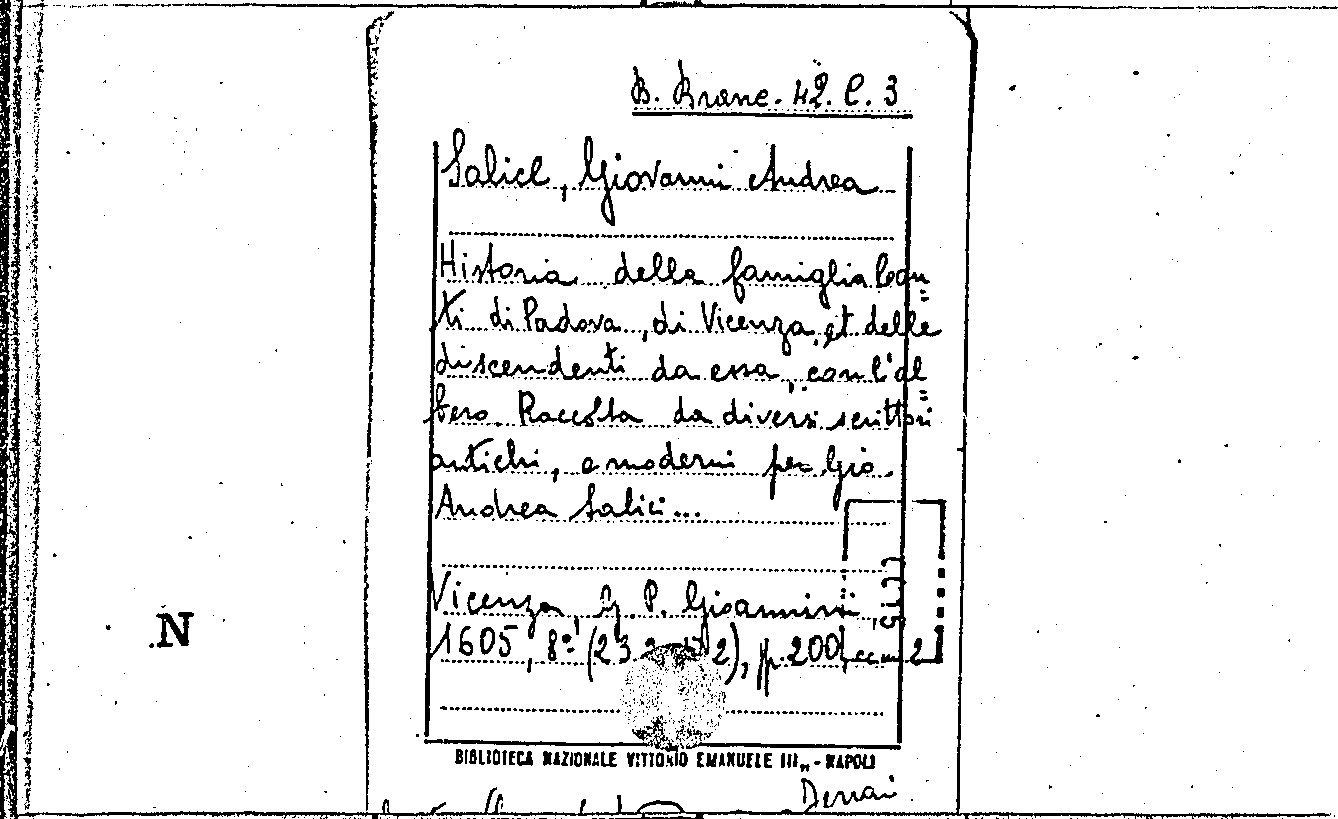 B. Branc. 42. C. 3
Salice, Giovanni Andrea
Historia della famiglia Con=
ti di Padova, di Vicenza, et delle
discendenti da essa, con l'al=
bero. Raccolta da diversi scrittori
antichi, e moderni per Gio.
Andrea Salici...
Vicenza, G. P. Gioannini,
1605, 8º, pp. 200,
N
BIBLIOTECA NAZIONALE VITTORIO EMANUELE III„ - NAPOLI